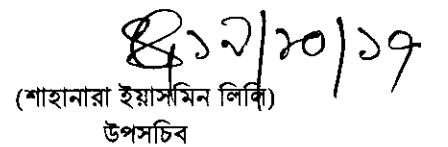 ১২/১০/১৭
(শাহানারা ইয়াসমিন লিলি)
উপসচিব